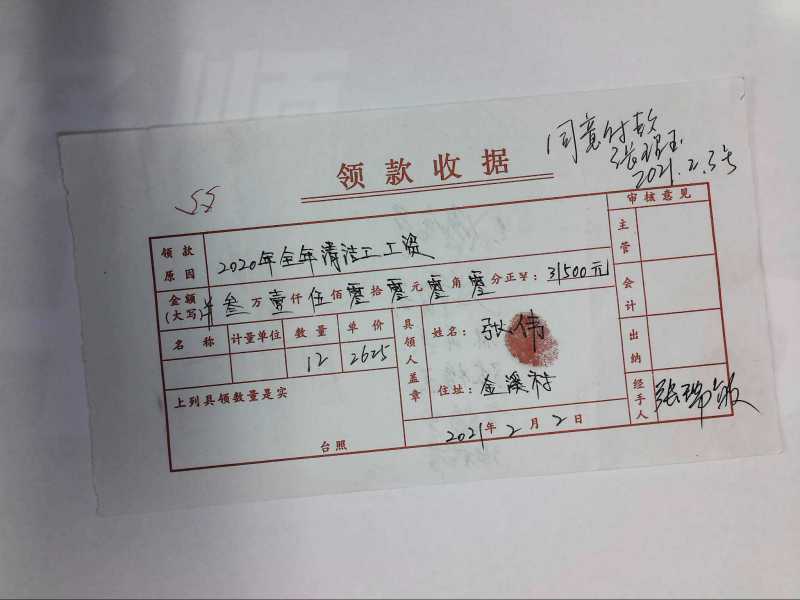 同意付款
张瑞玉
2021.2.3号
领款收据
55
审核意见
领款原因
2020年全年清洁工工资
主管
金额(大写)
叁万壹仟伍佰零拾零元零角零分正¥：31500元
会计
名称 计量单位 数量 单价
12 2625
具领人盖章
姓名：张伟
出纳
上列具领数量是实
住址：金溪村
经手人 张瑞敏
台照
2021年2月2日